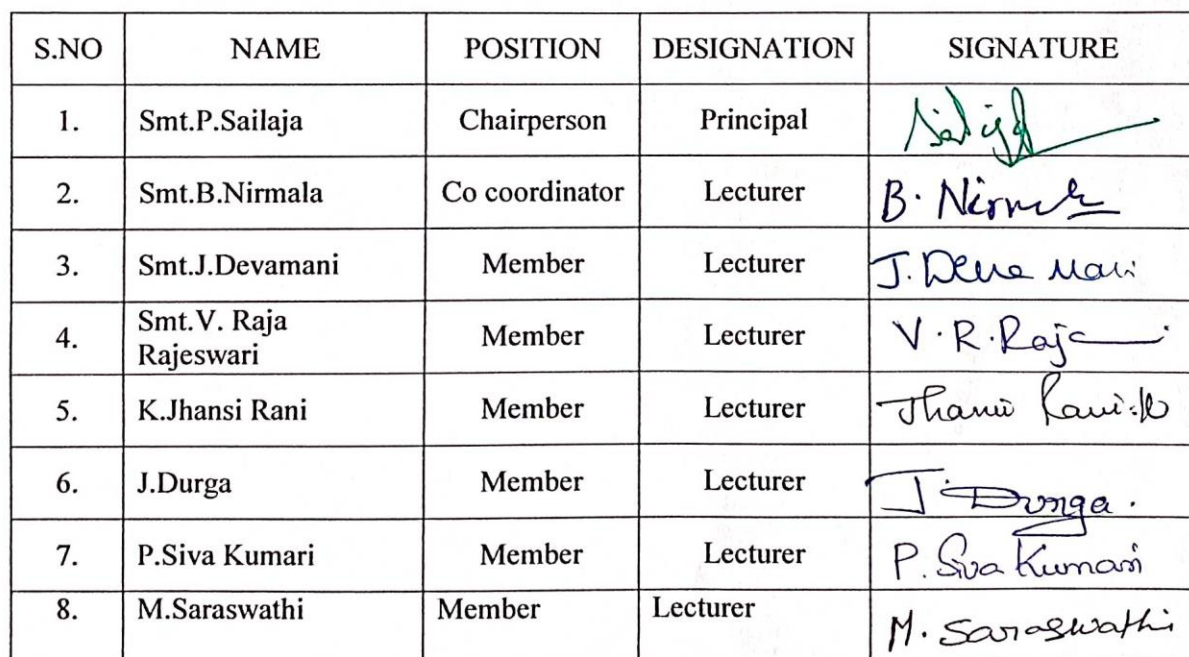 S.NO NAME POSITION DESIGNATION SIGNATURE
1. Smt.P.Sailaja Chairperson Principal
2. Smt.B.Nirmala Co coordinator Lecturer B. Nirmala
3. Smt.J.Devamani Member Lecturer J. Deva Mani
4. Smt.V. Raja
Rajeswari Member Lecturer V.R.Raja
5. K.Jhansi Rani Member Lecturer Jhansi Rani.K
6. J.Durga Member Lecturer J. Durga.
7. P.Siva Kumari Member Lecturer P. Siva Kumari
8. M.Saraswathi Member Lecturer M. Saraswathi